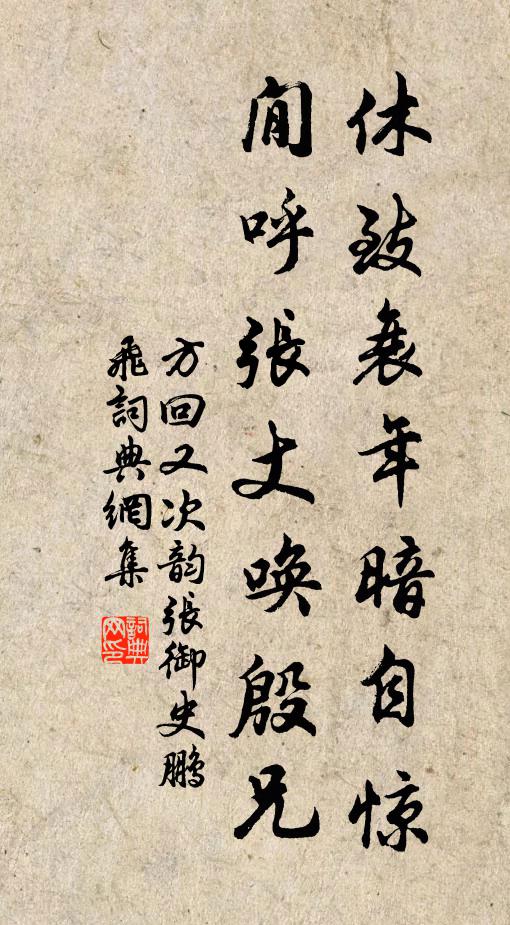 休致衰年暗自惊
閒呼張丈唤殷兄
方回又次韵張御史鵬
飛詞典網集
詞典网印